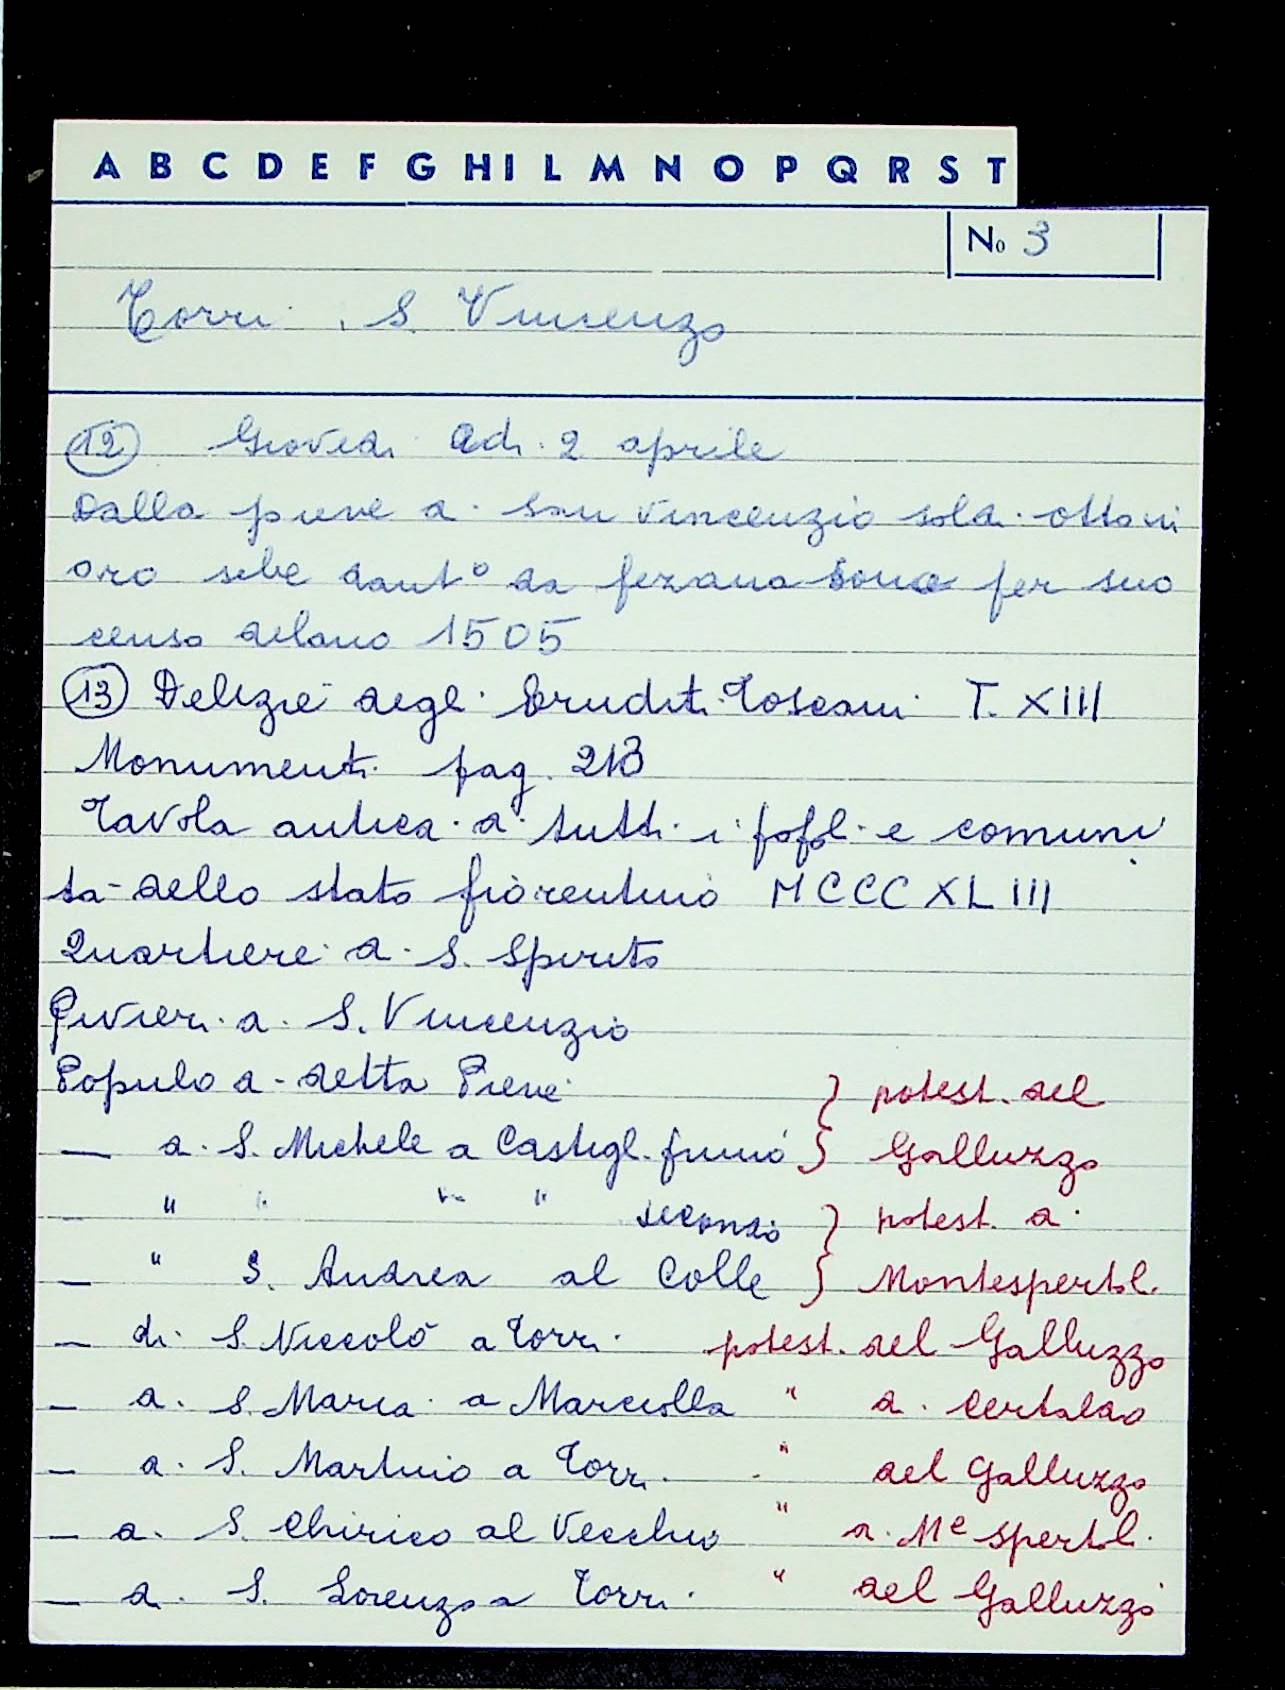 A B C D E F G H I L M N O P Q R S T
No 3
Torri . S. Vincenzo
12 Giovedi adi 2 aprile
Dalla pieve di San Vincenzio soldi ottan
oro sebe dant° da per suo
censo delano 1505
13 Delizie degli Eruditi Toscani T. XIII
Monumenti pag. 213
Tavola antica di tutti i popoli e comuni
tà dello stato fiorentino MCCCXLIII
Quartiere di S. Spirito
Pivieri di S. Vincenzio
Populo di detta Pieve } potest. del
— di S. Michele a Castigl. primo } Galluzzo
— " " " " secondo } potest. di
— " S. Andrea al Colle } Montespertoli
— di S. Niccolò a Torri potest. del Galluzzo
— di S. Maria a Marciolla " di Certaldo
— di S. Martino a Torri " del Galluzzo
— di S. Chirico al Vecchio " di Me spertoli
— di S. Lorenzo a Torri " del Galluzzo